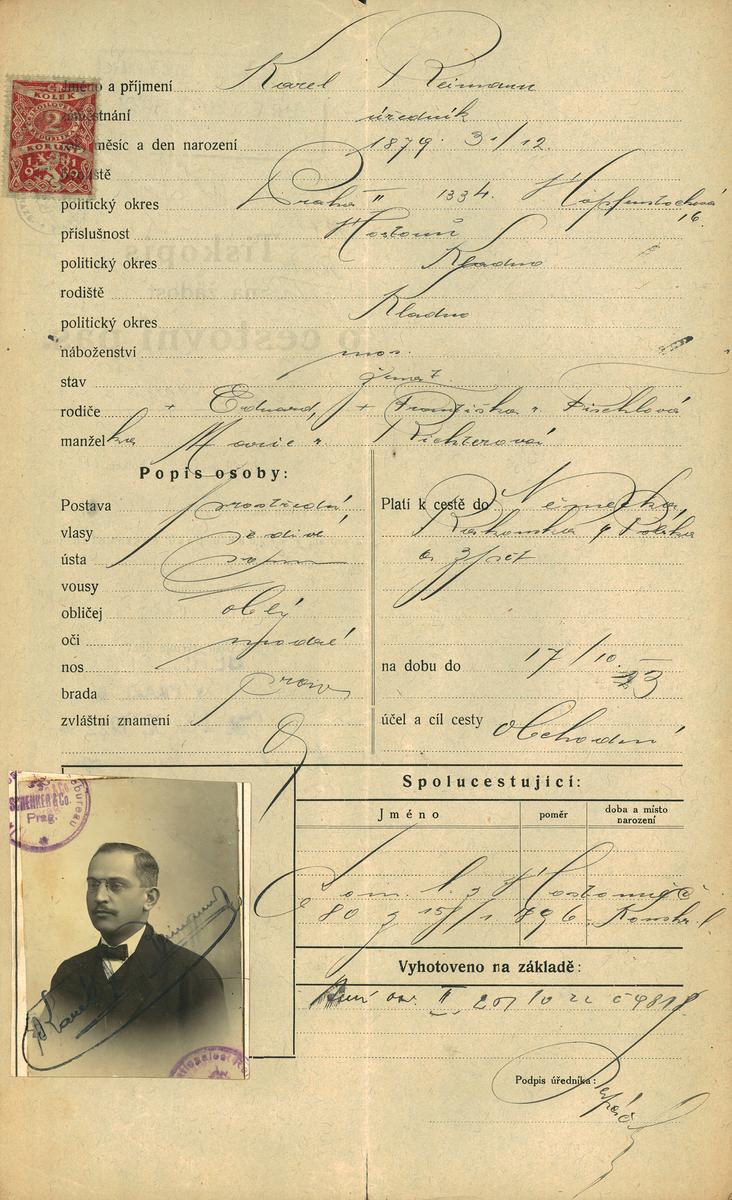 Jméno a příjmení Karel Reimann
zaměstnání úředník
měsíc a den narození 1879. 31/12.
bydliště
politický okres Praha II 1334. Hopfenstokova 16.
příslušnost Hostouň
politický okres Kladno
rodiště
politický okres Kladno
náboženství mos.
stav ženat
rodiče + Eduard, + Františka r. Fischlová
manželka Marie r. Richterová
Popis osoby:
Postava prostřední
vlasy šedivé
ústa
vousy
obličej oblý
oči modré
nos
brada
zvláštní znamení
Platí k cestě do Německa,
Rakouska, Polska
a zpět
na dobu do 17/10. 23
účel a cíl cesty obchodní
KOLEK
2
KORUNY
1919
Spolucestující:
Jméno
poměr
doba a místo narození
Dom. l. z Hostouně č
80 z 15/1 1896
Vyhotoveno na základě:
II 20/10 22
Podpis úředníka:
SCHENKER & Co.
Prag.
Karel Reimann